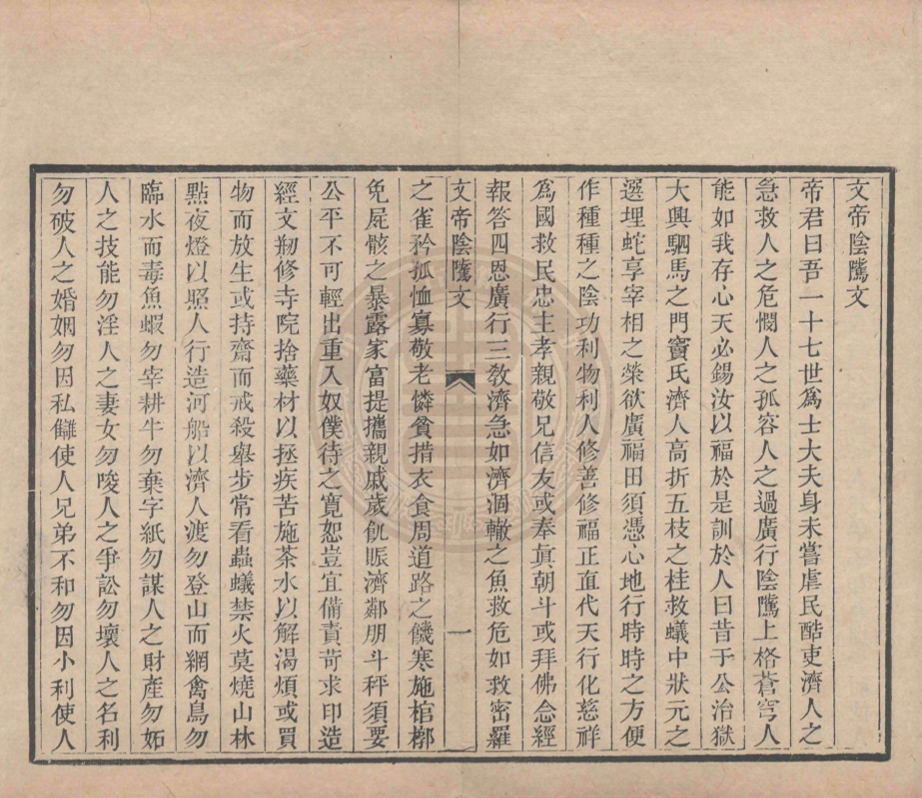 文帝陰騭文
帝君曰吾一十七世爲士大夫身未嘗虐民酷吏濟人之
急救人之危憫人之孤容人之過廣行陰騭上格蒼穹人
能如我存心天必錫汝以福於是訓於人曰昔于公治獄
大興駟馬之門竇氏濟人高折五枝之桂救蟻中狀元之
選埋蛇享宰相之榮欲廣福田須憑心地行時時之方便
作種種之陰功利物利人修善修福正直代天行化慈祥
爲國救民忠主孝親敬兄信友或奉眞朝斗或拜佛念經
報答四恩廣行三敎濟急如濟涸轍之魚救危如救密羅
文帝陰騭文 一
之雀矜孤恤寡敬老憐貧措衣食周道路之饑寒施棺槨
免屍骸之暴露家富提攜親戚歲飢賑濟鄰朋斗秤須要
公平不可輕出重入奴僕待之寬恕豈宜備責苛求印造
經文刱修寺院捨藥材以拯疾苦施茶水以解渴煩或買
物而放生或持齋而戒殺舉步常看蟲蟻禁火莫燒山林
點夜燈以照人行造河船以濟人渡勿登山而網禽鳥勿
臨水而毒魚蝦勿宰耕牛勿棄字紙勿謀人之財產勿妬
人之技能勿淫人之妻女勿唆人之爭訟勿壞人之名利
勿破人之婚姻勿因私讎使人兄弟不和勿因小利使人